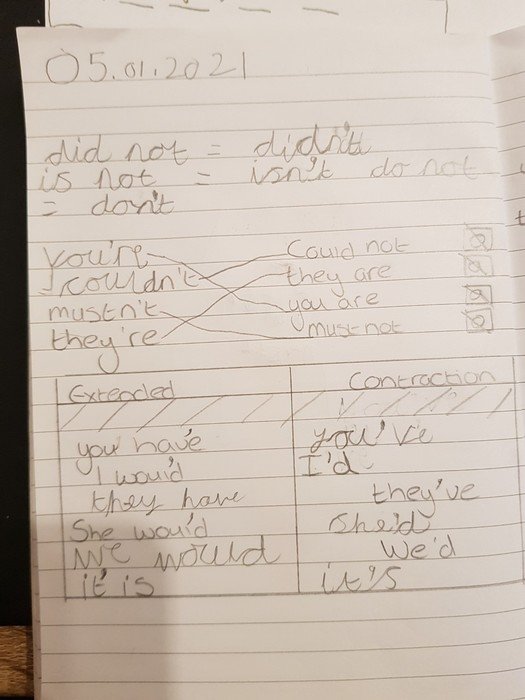 05.01.2021
did not = didn't
is not = isn't do not
= don't
you're could not
couldn't they are
mustn't you are
they're must not
Extended Contraction
you have you've
I would I'd
they have they've
She would She'd
We would We'd
it is it's